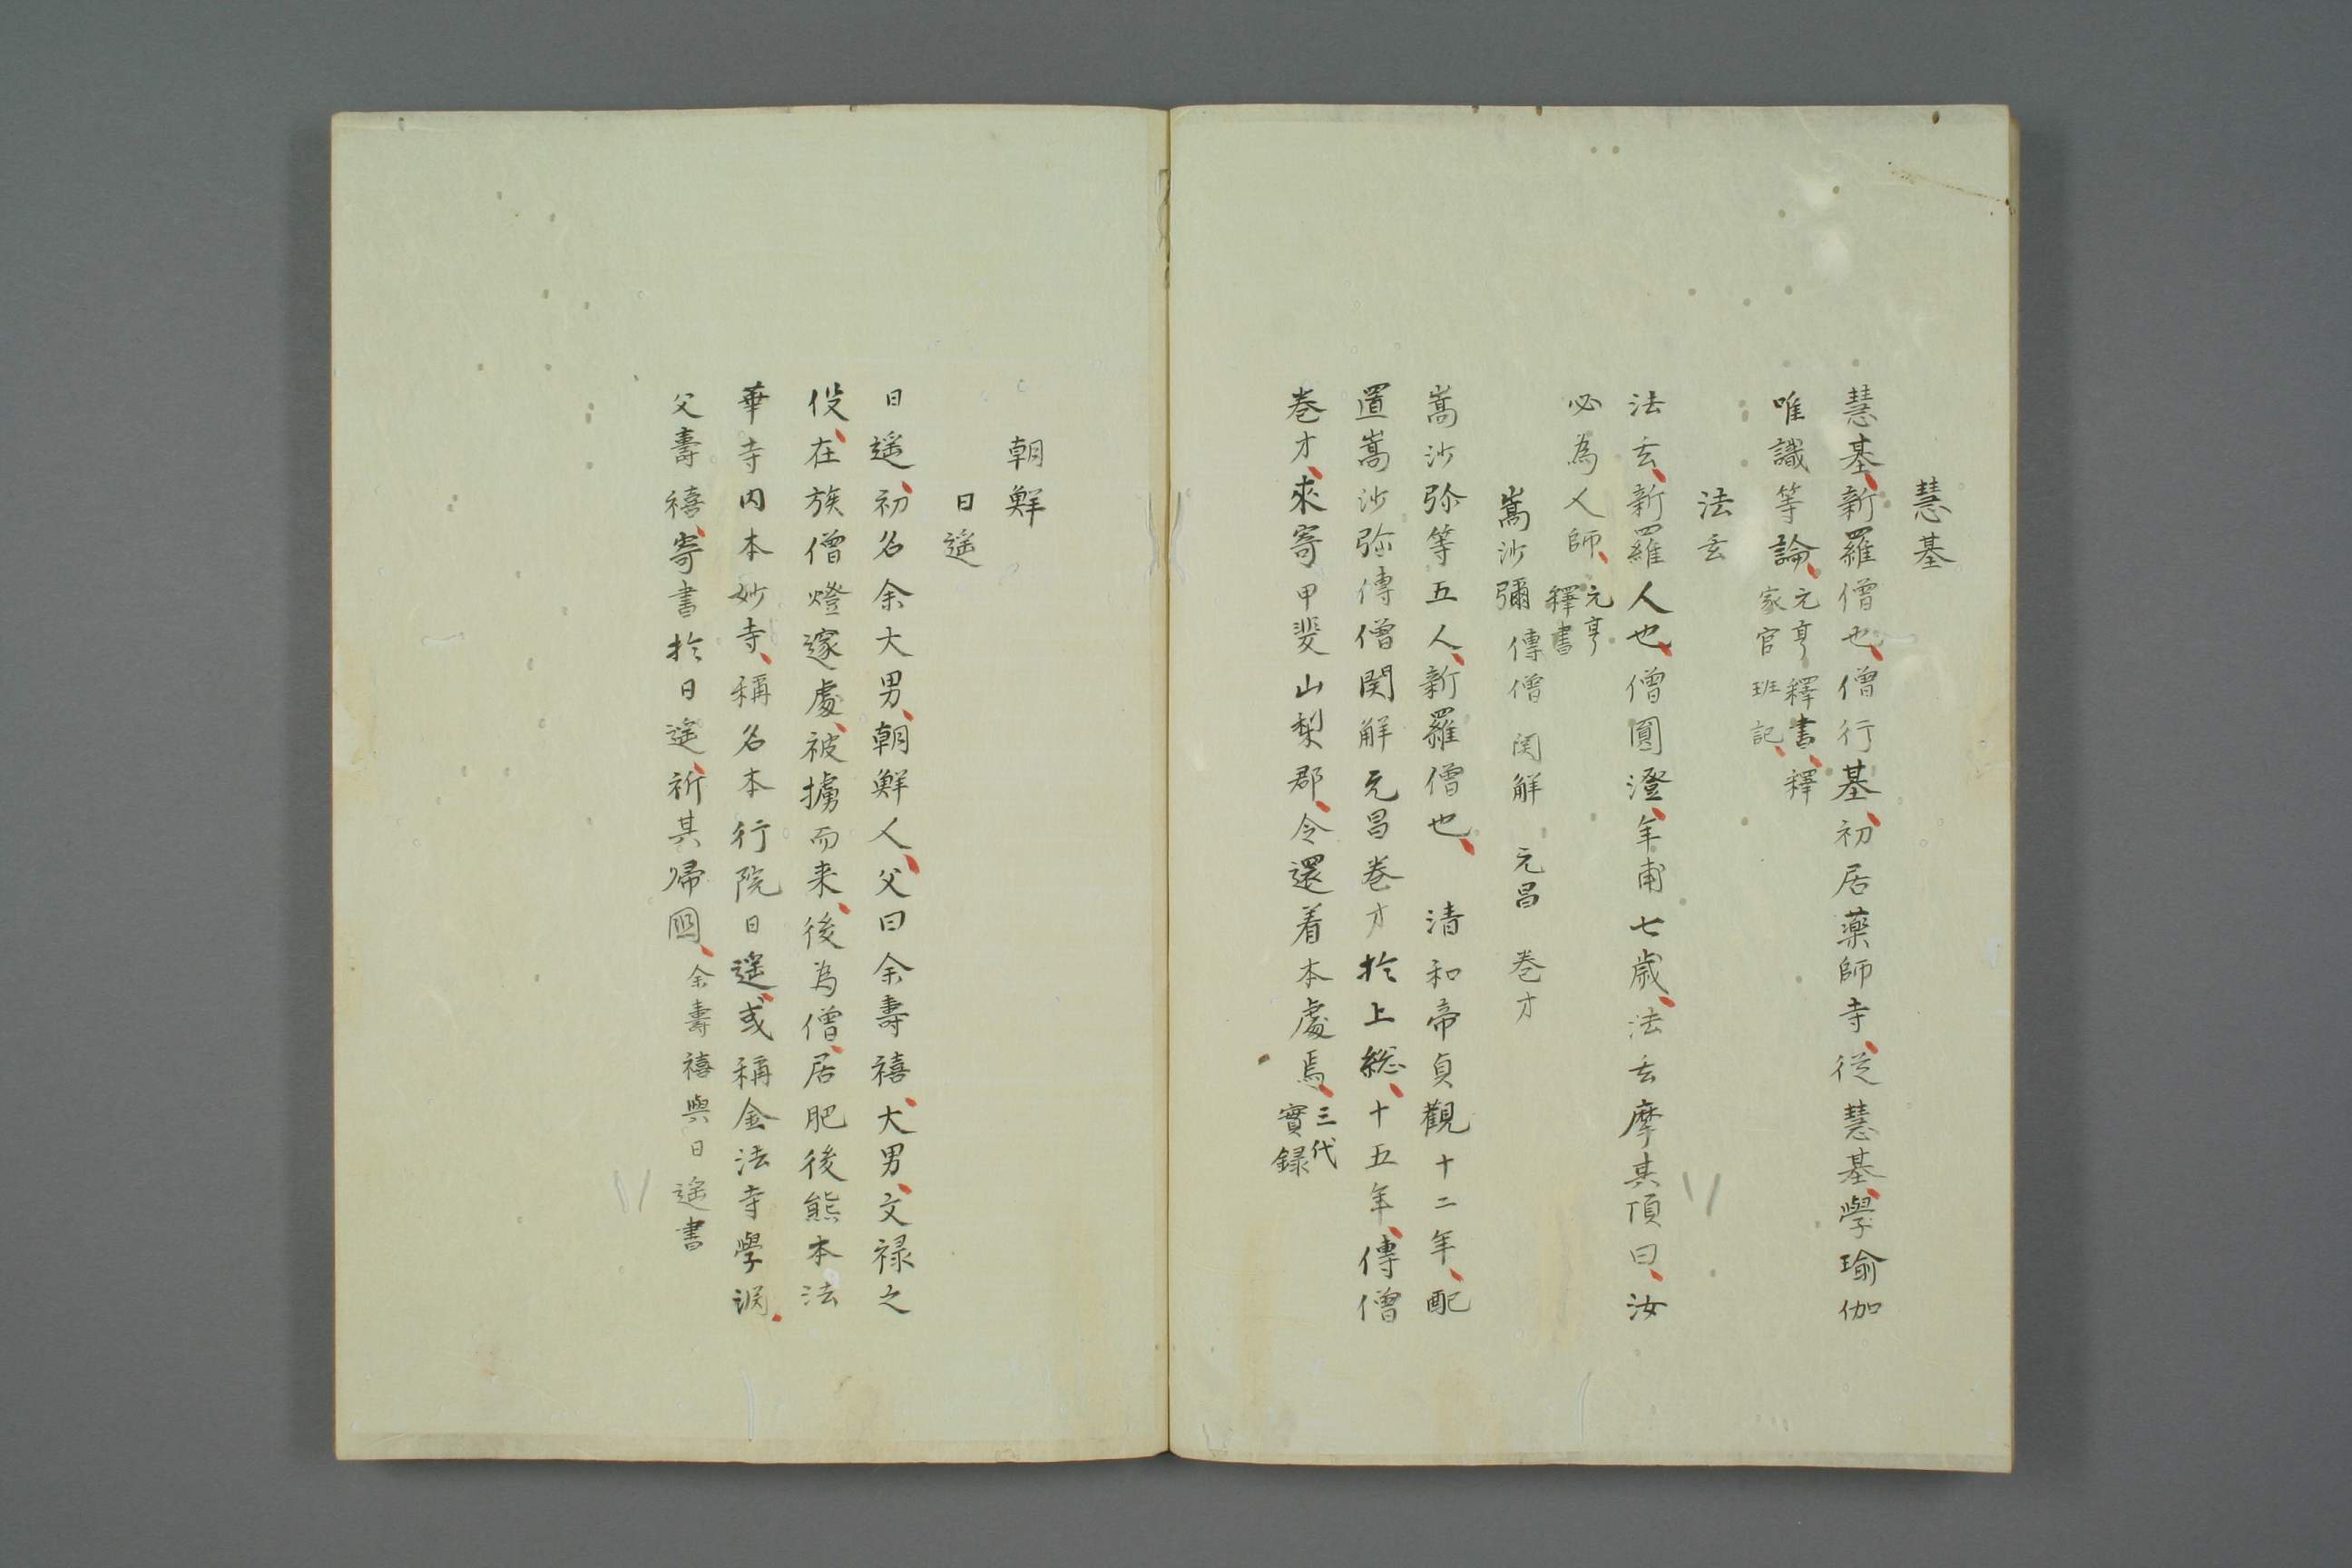 慧基
慧基、新羅僧也、僧行基、初居藥師寺、從慧基、學瑜伽
唯識等論、元亨釋書、釋
家官班記、
法玄
法玄、新羅人也、僧圓澄、年甫七歳、法玄摩其頂曰、汝
必為人師、元亨
釋書
嵩沙彌 傳僧 関解 元昌 巻才
嵩沙弥等五人、新羅僧也、 清和帝貞觀十二年、配
置嵩沙弥傳僧関解元昌巻才於上総、十五年、傳僧
巻才、來寄甲斐山梨郡、令還着本處焉、三代
實録
朝鮮
日遥
日遥、初名余大男、朝鮮人、父曰余壽禧、大男、文禄之
役、在族僧燈邃處、被擄而来、後為僧、居肥後熊本法
華寺内本妙寺、稱名本行院日遥、或稱金法寺學淵、
父壽禧、寄書於日遥、祈其帰國、余壽禧與日遥書